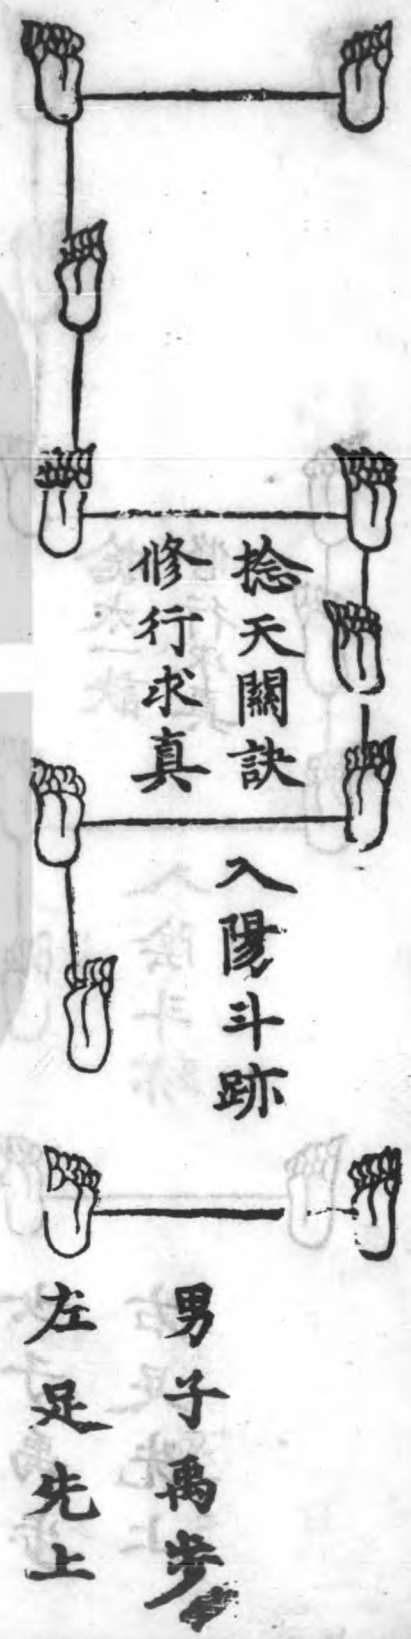 捻天關訣
修行求真
入陽斗跡
男子禹步
左足先上